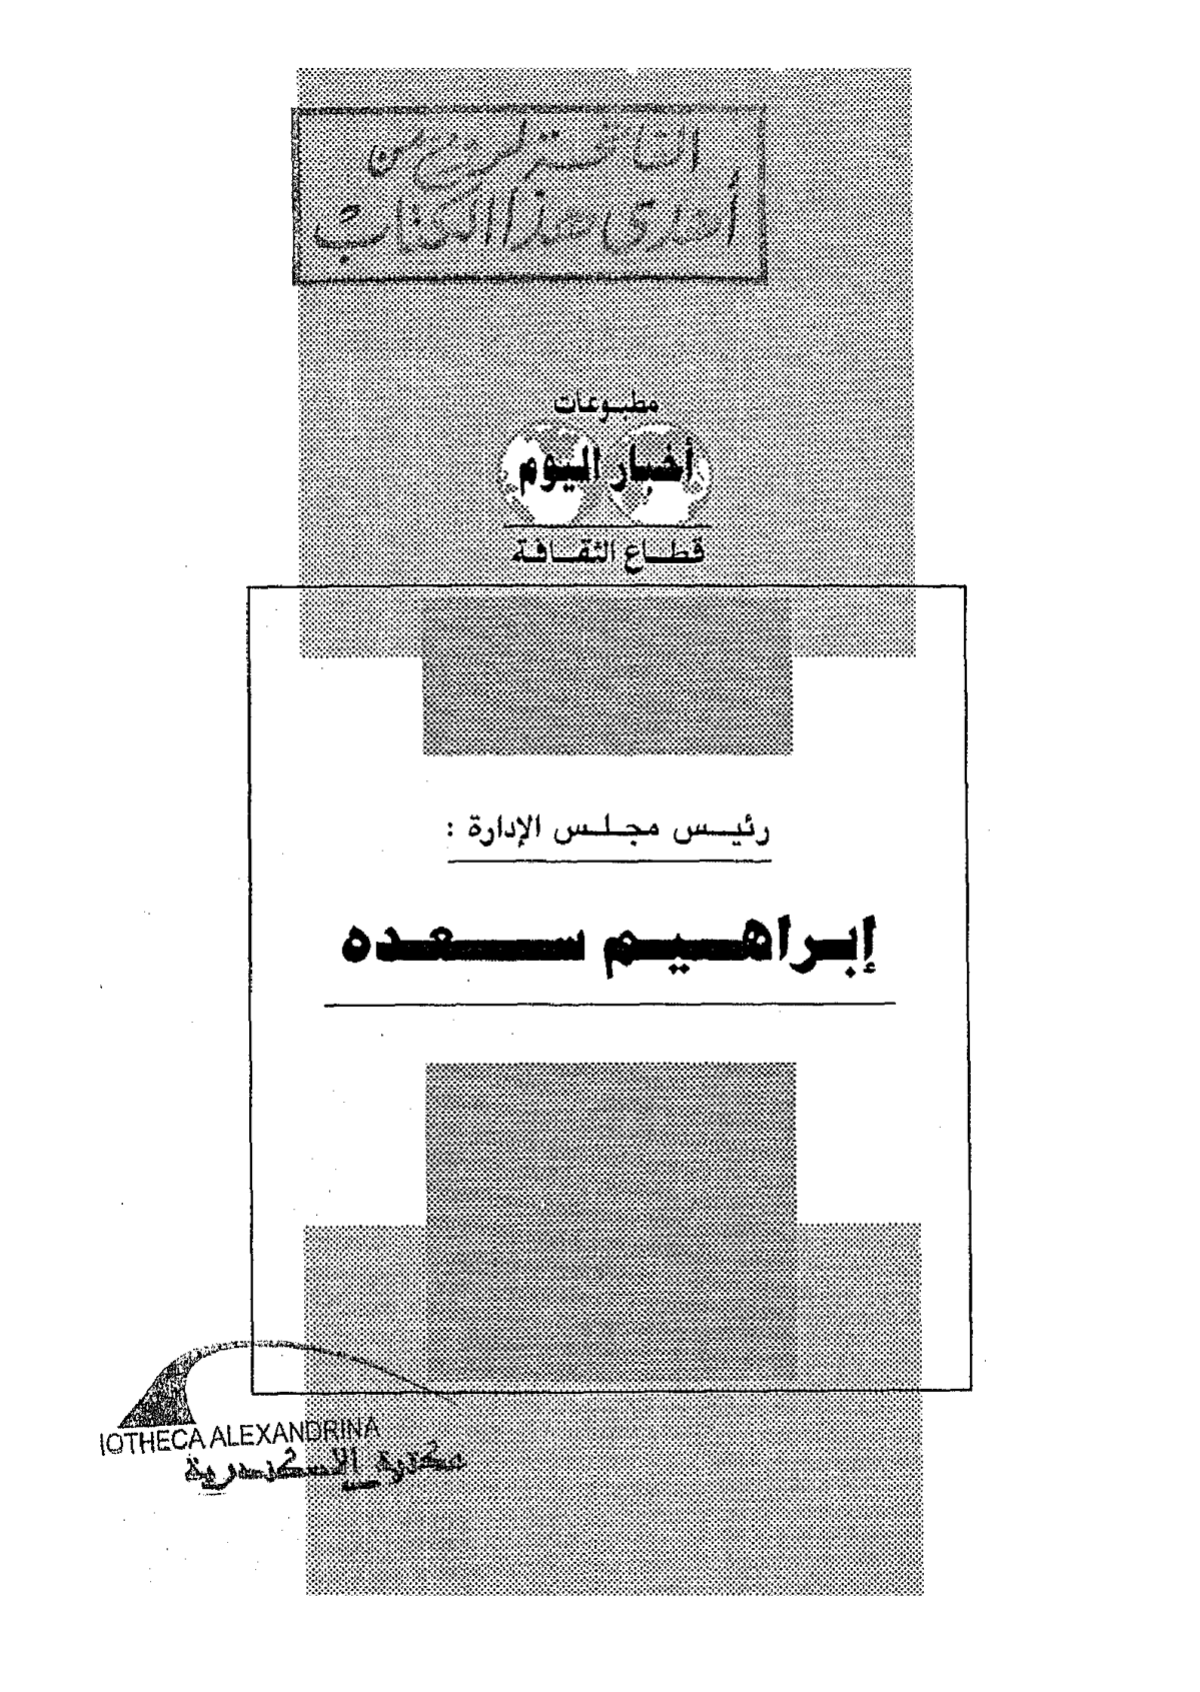 أهدى هذا الكتاب
مطبوعات
أخبار اليوم
قطاع الثقافة
رئيس مجلس الإدارة :
إبراهيم سعده
IOTHECA ALEXANDRINA
مكتبة الإسكندرية